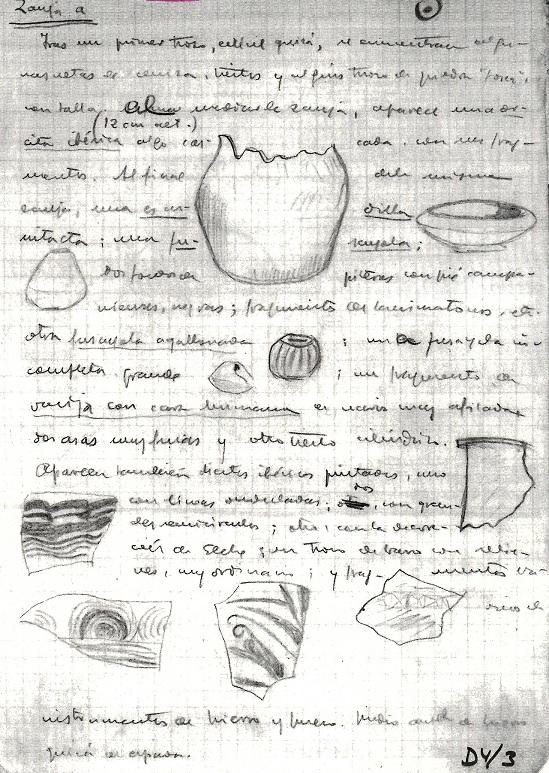 Zanja a
Tras un primer trozo, estéril quizá, se encuentran algu-
nas vetas de ceniza, tiestos y algún trozo de piedra tosca,
con talla. Al mediar la zanja, aparece una or-
(12 cm alt.)
cita ibérica algo cas- cada, con sus frag-
mentos. Al final de la misma
zanja, una es cu- dilla
intacta; una fu- sayola;
dos fondos de páteras con pié campa-
nienses, negras; fragmentos de
otra fusayola agallonada ; una fusayola in-
completa grande ; un fragmento de
vasija con cara humana de nariz muy afilada
dos asas muy finas y otro tiesto cilíndrico.
Aparecen también tiestos ibéricos pintados, uno
con líneas onduladas; dos, con gran-
des semicírculos; otro, con la decora-
ción de Elche; un trozo de barro con relie-
ves, muy ordinario; y frag- mentos va-
rios de
instrumentos de hierro y hueso. Medio de hierro
quizá de espada.
D4/3